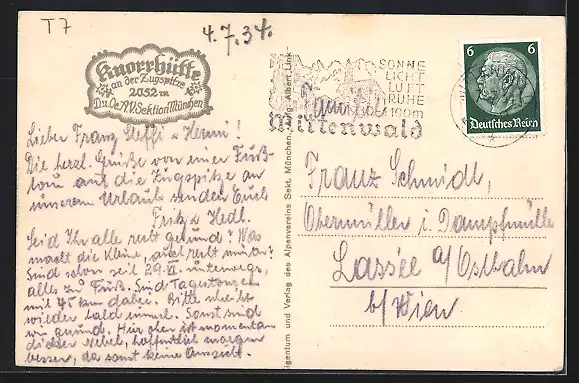 T7
4.7.34.
Knorrhütte
an der Zugspitze
2052 m
D.u.Oe.A.V. Sektion München
SONNE
LICHT
LUFT
RUHE
920m
Mittenwald
6 6
Deutsches Reich
Lieber Franz, Steffi u Hermi!
Die herzl. Grüße von einer Fuß-
tour auf die Zugspitze an
unserem Urlaub senden Euch
Fritz u Hedl.
Seid Ihr alle recht gesund? Was
macht die Kleine, auch recht munter?
Sind schon seit 29.VI. unterwegs,
alles zu Fuß. Sind Tagestouren
mit 45 km dabei. Bitte schreibt
wieder bald einmal. Sonst sind
wir gesund. Hier oben ist momentan
dicker Nebel, hoffentlich morgen
besser, da sonst keine Aussicht.
Eigentum und Verlag des Alpenvereins Sekt. München, Aufg. Albert Link
Franz Schmidt,
Obermüller i. Dampfmühle
Lassee a/Ostbahn
b/Wien